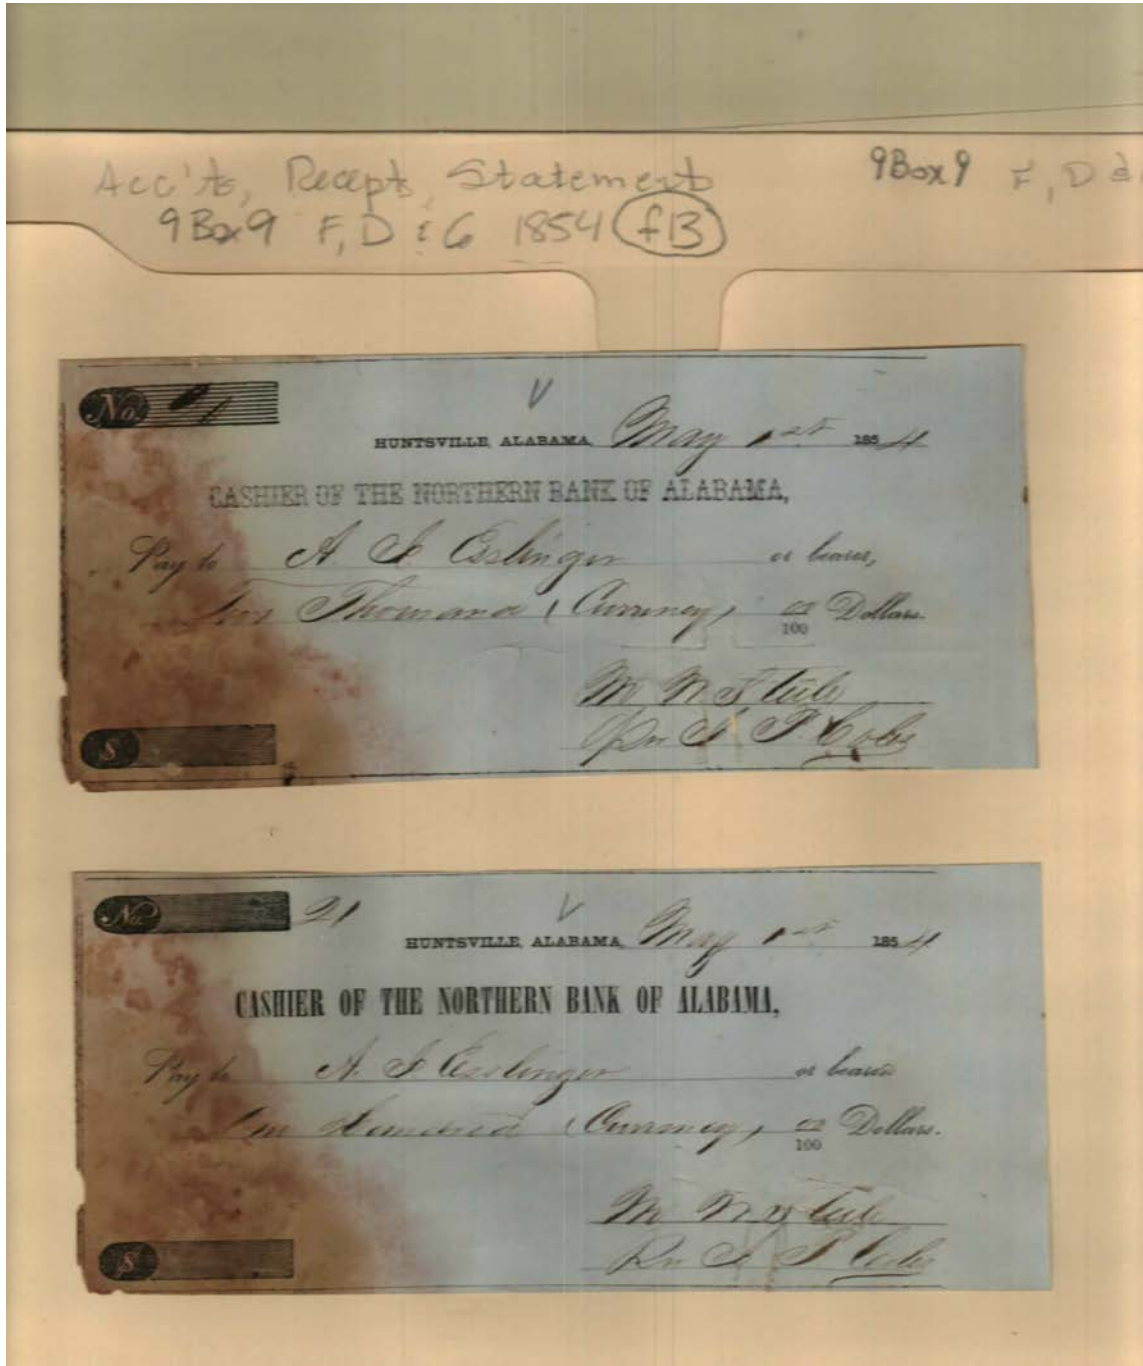 Acc'ts, Recepts, Statement
9Box9 F, D & G 1854 f13
9Box9 F, D &
No. 1
HUNTSVILLE, ALABAMA, May 1st 1854
CASHIER OF THE NORTHERN BANK OF ALABAMA,
Pay to A. J. Esslinger or bearer,
Thousand (Currency) 00/100 Dollars.
M M Steele
Per
$
No. 21
HUNTSVILLE, ALABAMA, May 1st 1854
CASHIER OF THE NORTHERN BANK OF ALABAMA,
Pay to A. J. Esslinger or bearer
One Hundred (Currency) 00/100 Dollars.
M M Steele
Per
$